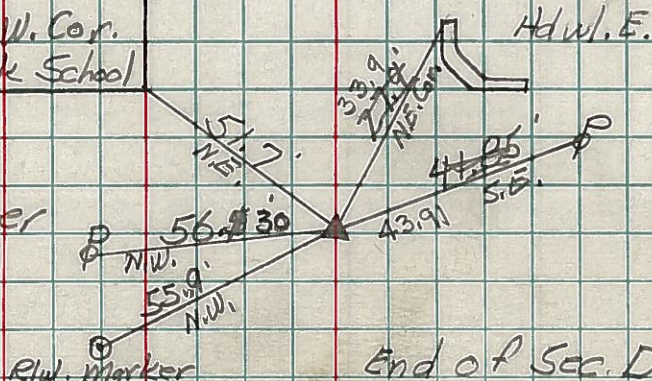 W. Cor.
k School
Hdwl. E.
33.9'
N.E. Cor.
51.7'
N.E.
41.85'
S.E.
43.91
er
56. 30
N.W.
55.9'
N.W.
R/W. Marker
End of Sec. D